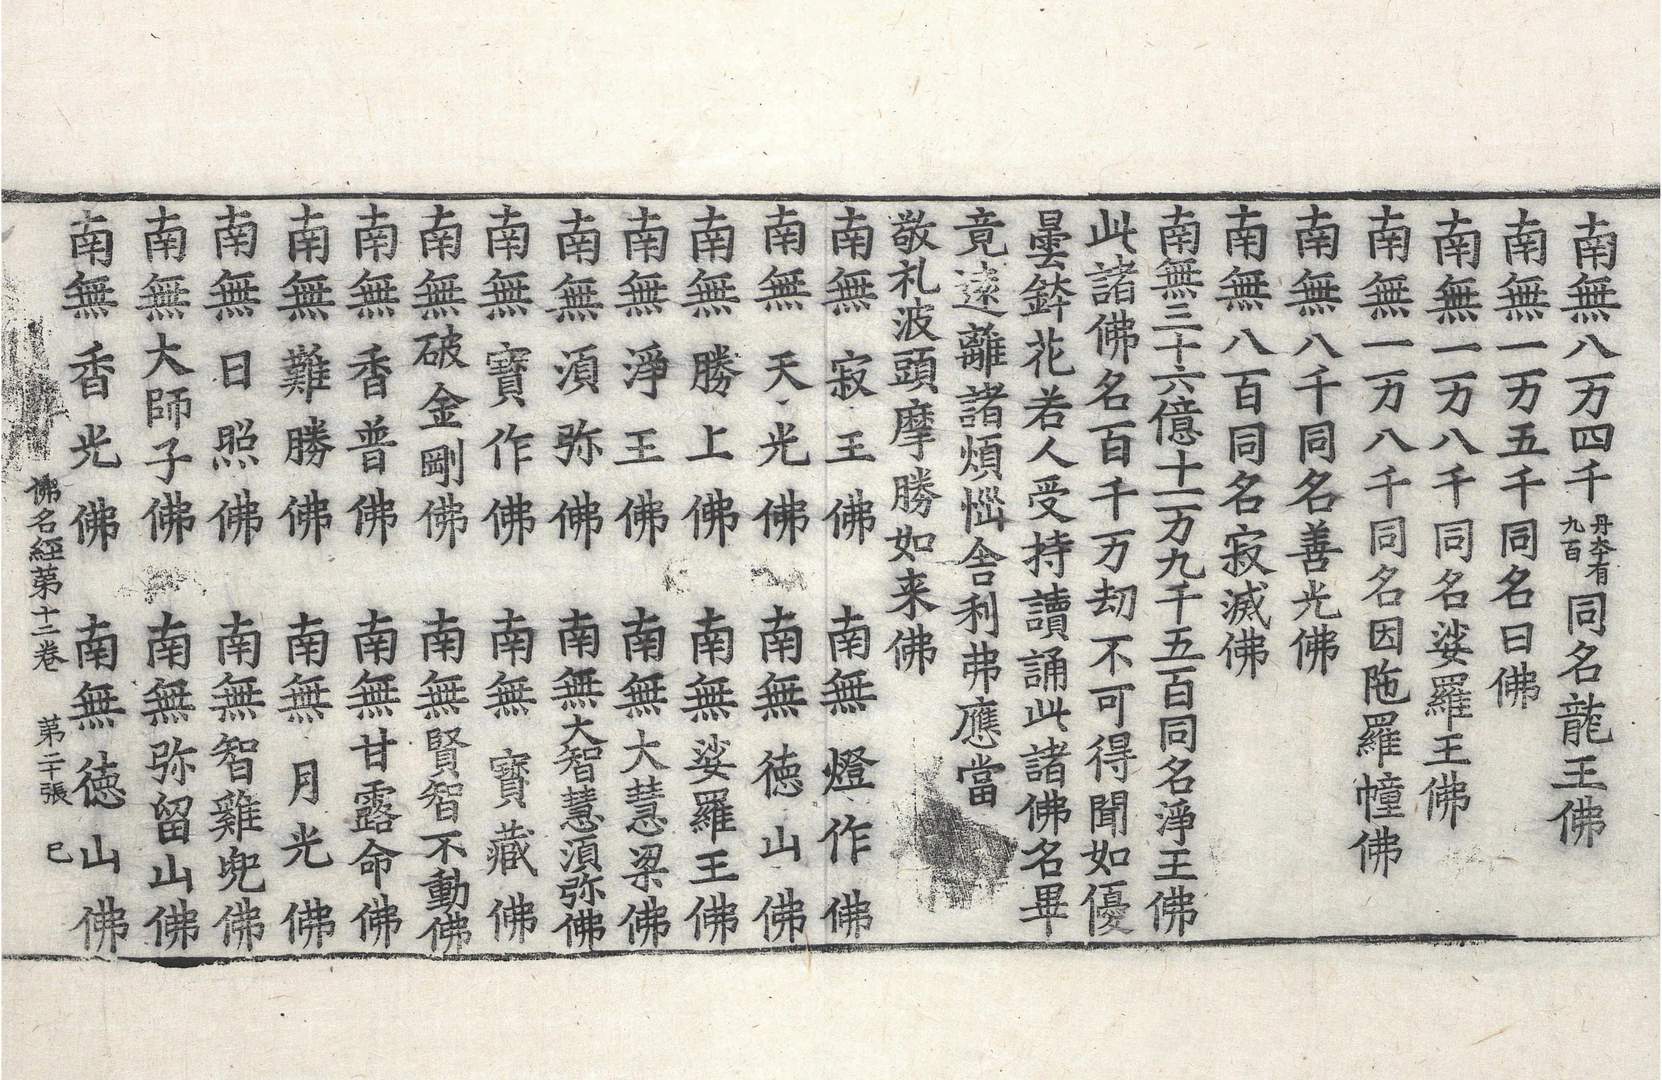 南無八万四千丹夲有九百同名龍王佛
南無一万五千同名日佛
南無一万八千同名娑羅王佛
南無一万八千同名因陁羅幢佛
南無八千同名善光佛
南無八百同名寂滅佛
南無三十六億十一万九千五百同名淨王佛
此諸佛名百千万劫不可得聞如優
曇鉢花若人受持讀誦此諸佛名畢
竟遠離諸煩惱舍利弗應當
敬礼波頭摩勝如来佛
南無寂王佛　南無燈作佛
南無天光佛　南無德山佛
南無勝上佛　南無娑羅王佛
南無淨王佛　南無大慧梁佛
南無湏弥佛　南無大智慧湏弥佛
南無寶作佛　南無寶藏佛
南無破金剛佛　南無賢智不動佛
南無香普佛　南無甘露命佛
南無難勝佛　南無月光佛
南無日照佛　南無智雞兜佛
南無大師子佛　南無弥留山佛
南無香光佛　南無德山佛
佛名經第十二卷　第二十張　已